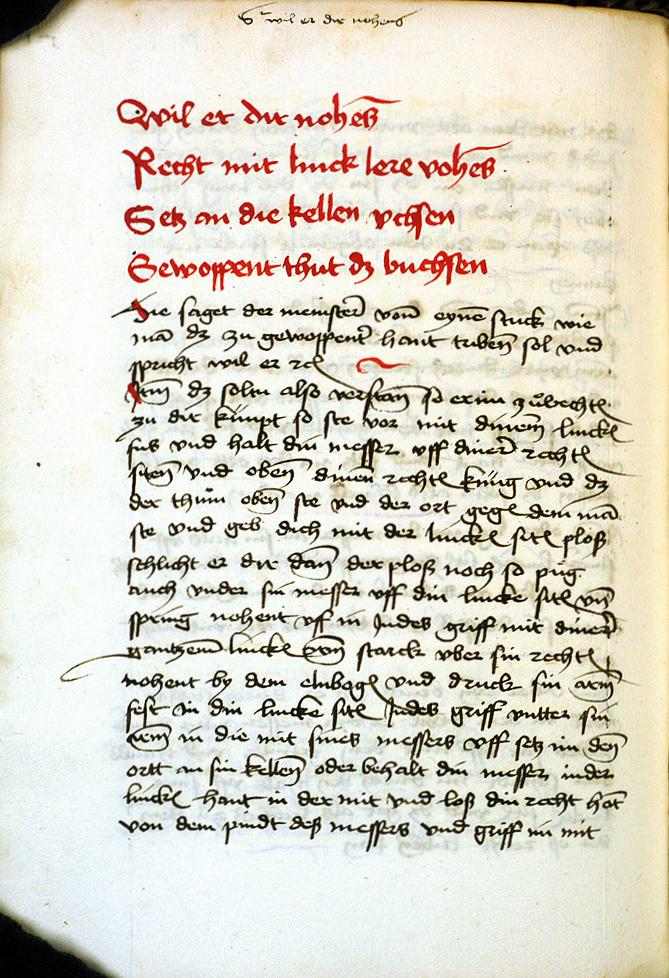 wil er dir nohens
Wil er dir nohens
Recht mit linck lere vohens
Setz an die kellen vchsen
Gewoppent thut dz buchsen
Hie saget der meinster von eynen stuck wie
man dz zu gewoppent hant triben sol vnd
spricht wil er rc
Itm dz soltu also verstan so er im zufechten
zu dir kumpt so ste vor mit dinem lincken
fus vnd halt din messer vff diner rechten
siten vnd oben dinen rechten knüg vnd dz
der thum oben ste vnd der ort gegen dem man
ste vnd geb dich mit der lincken siten ploß
schlecht er dir dan der ploß noch so püg
auch vnder sin messer vff din lincke siten vnd
spring nohent vf in Indes griff mit diner
gantzenn lincken arm starck vber sin rechten
nohent by dem elnbogen vnd druck sin arm
fest in din lincke siten Indes griff vntter sin
arm in die mit sines messers vff setz im den
ortt an sin kellen oder behalt din messer in der
lincken hant in der mit vnd loß din recht hant
von dem pindt deß messers vnd griff im mit